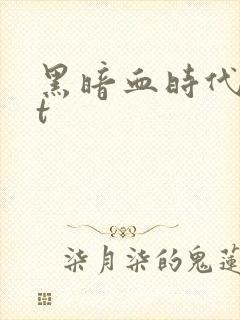 黑暗血時代
t
柒月柒的鬼蓮